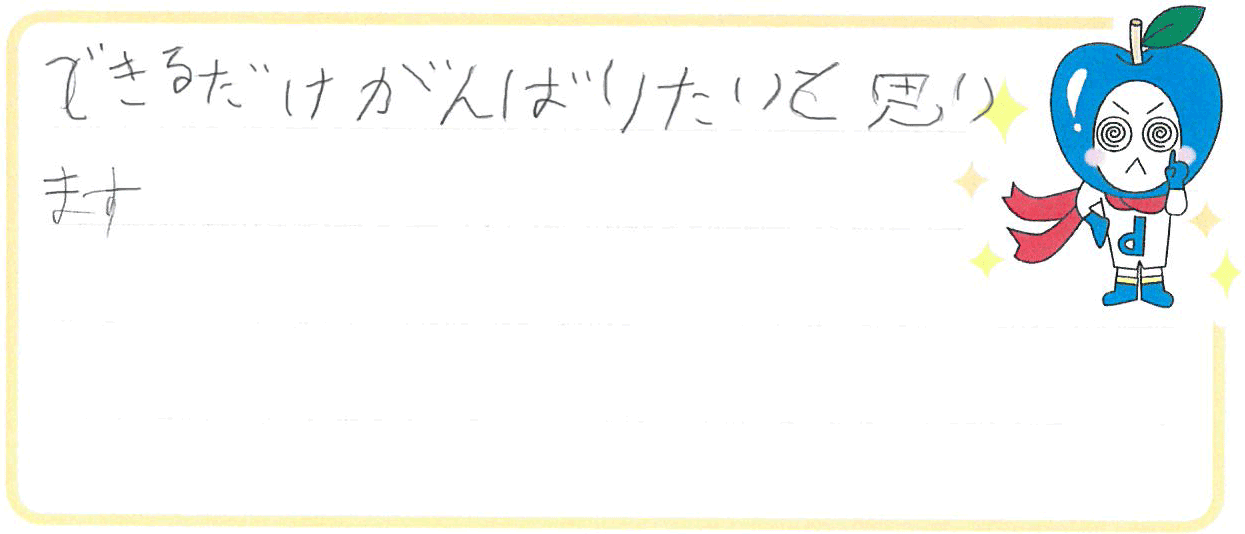 できるだけがんばりたいと思い
ます
d